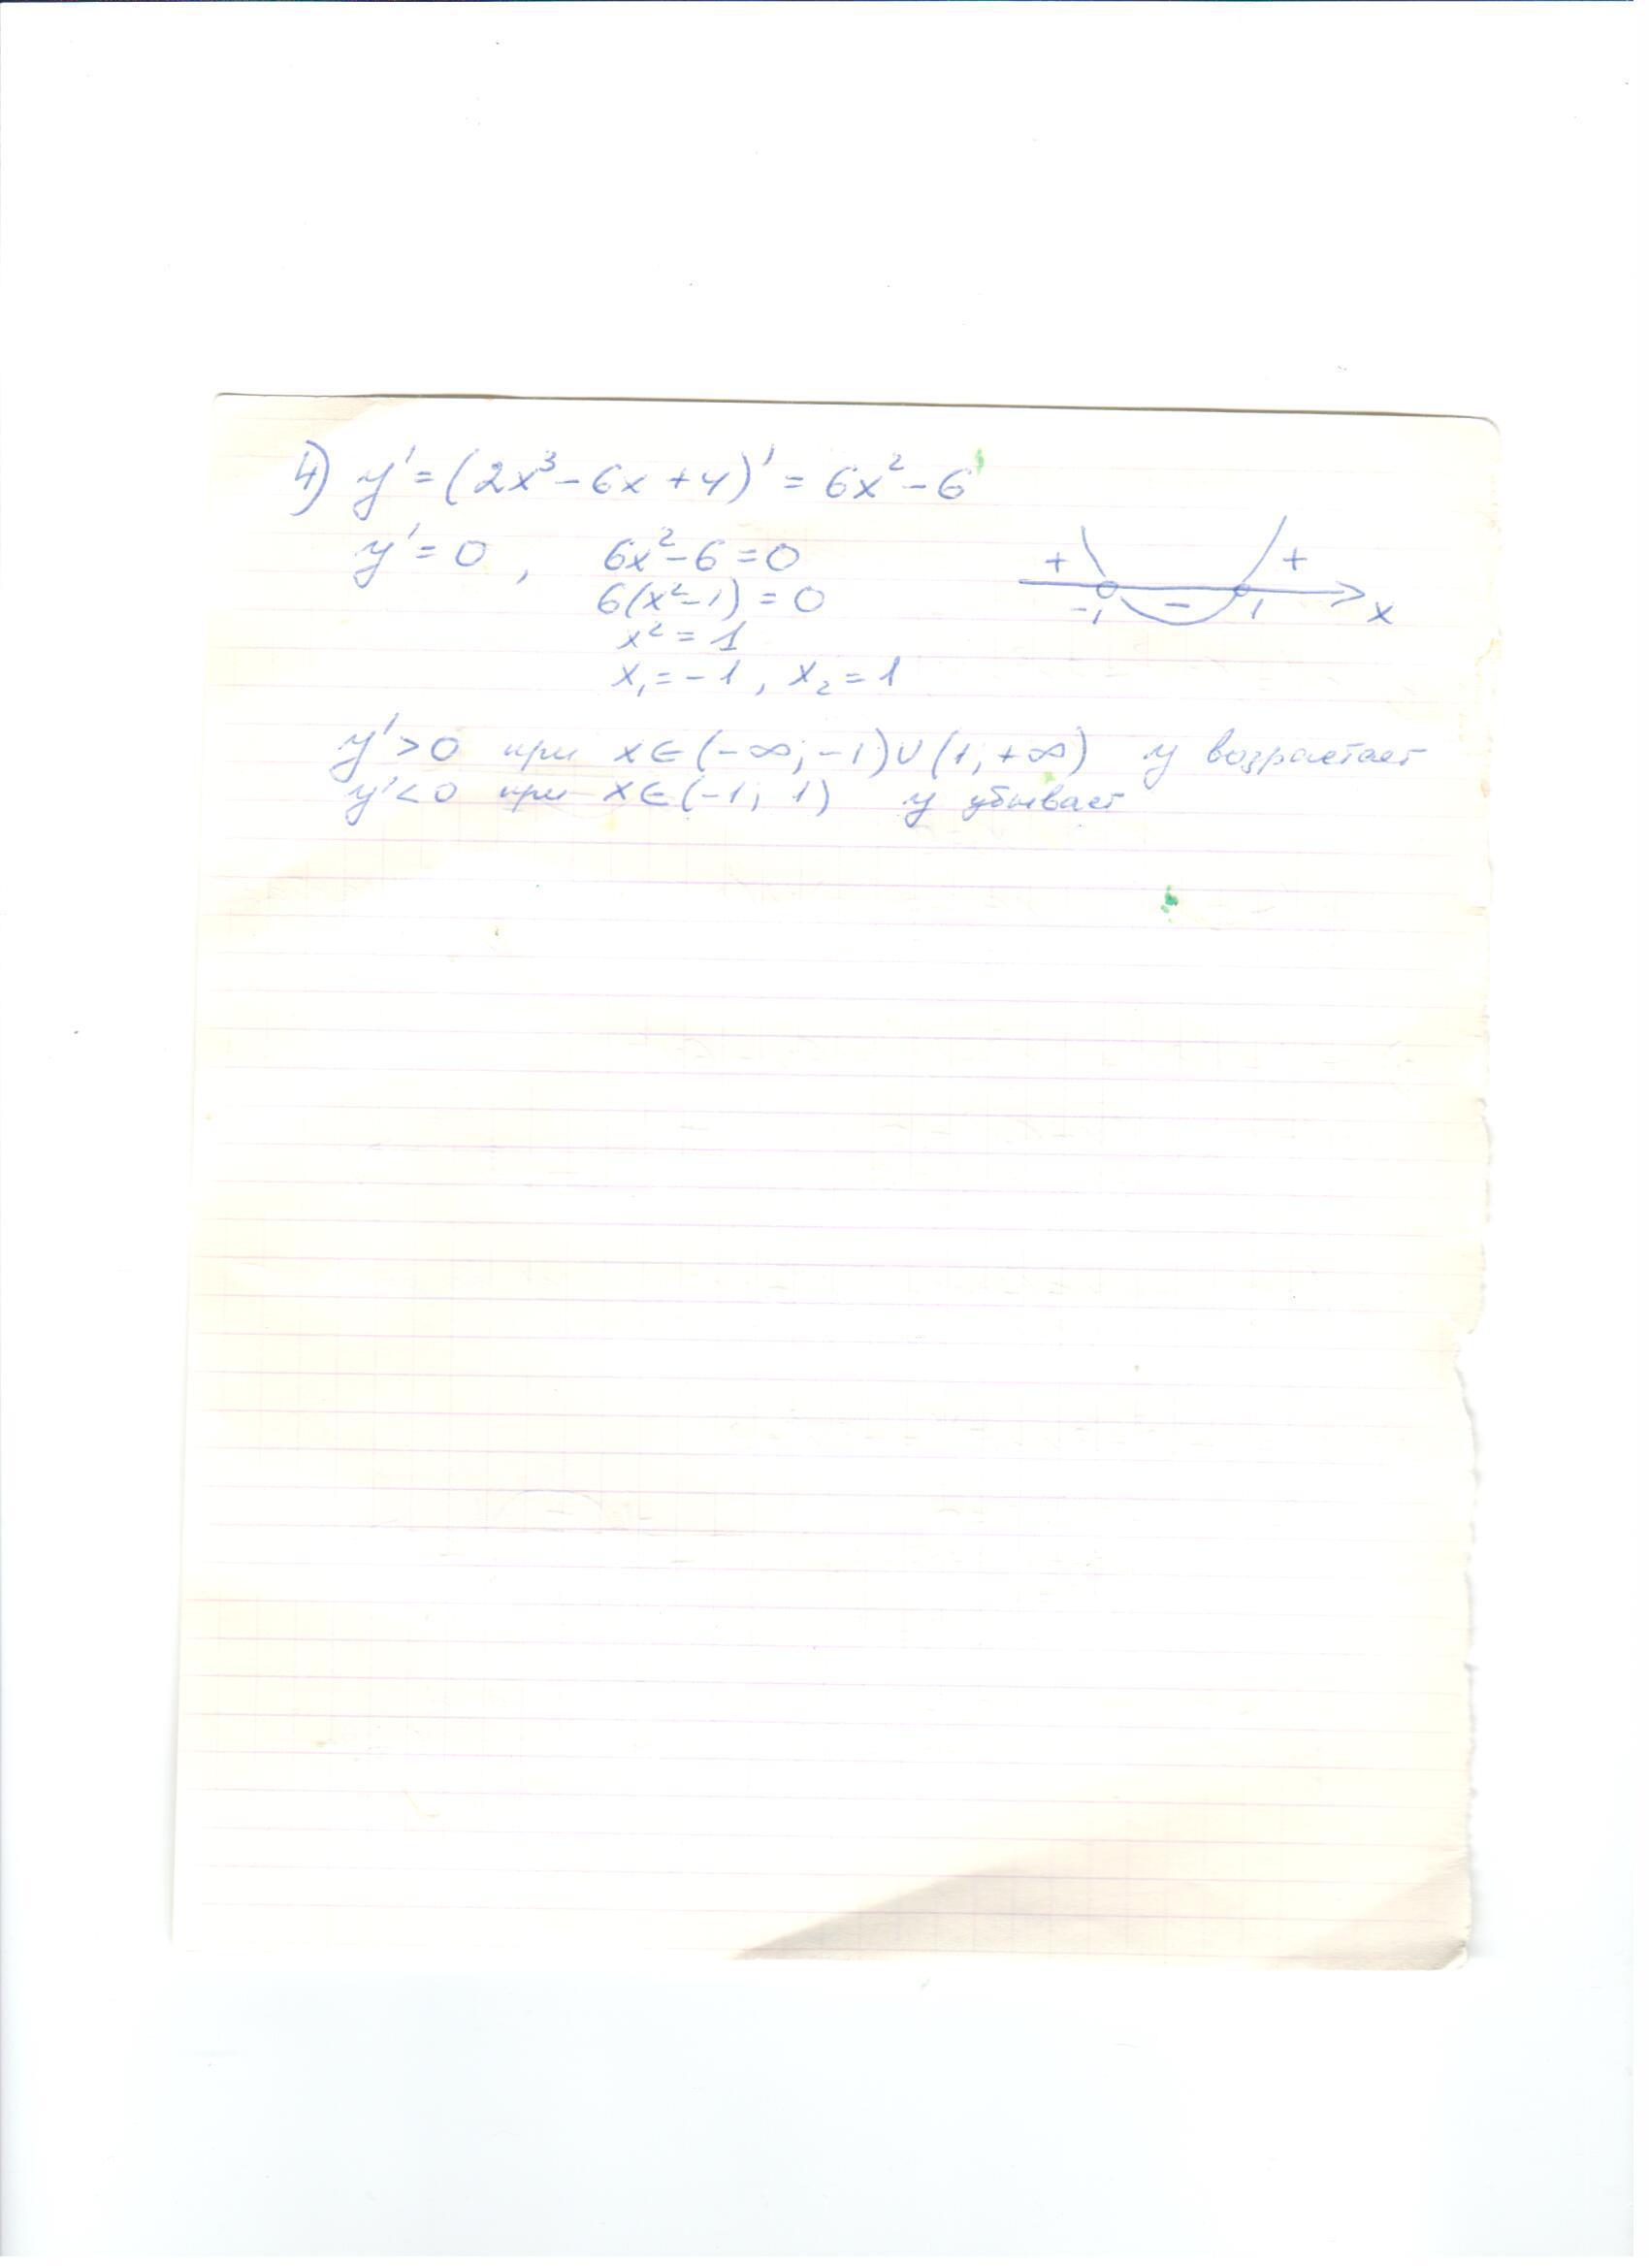 4) y' = (2x³ - 6x + 4)' = 6x² - 6
y' = 0, 6x² - 6 = 0
6(x² - 1) = 0
x² = 1
x₁ = -1, x₂ = 1
+ - +
-1 1 x
y' > 0 при x ∈ (-∞; -1) ∪ (1; +∞) y возрастает
y' < 0 при x ∈ (-1; 1) y убывает